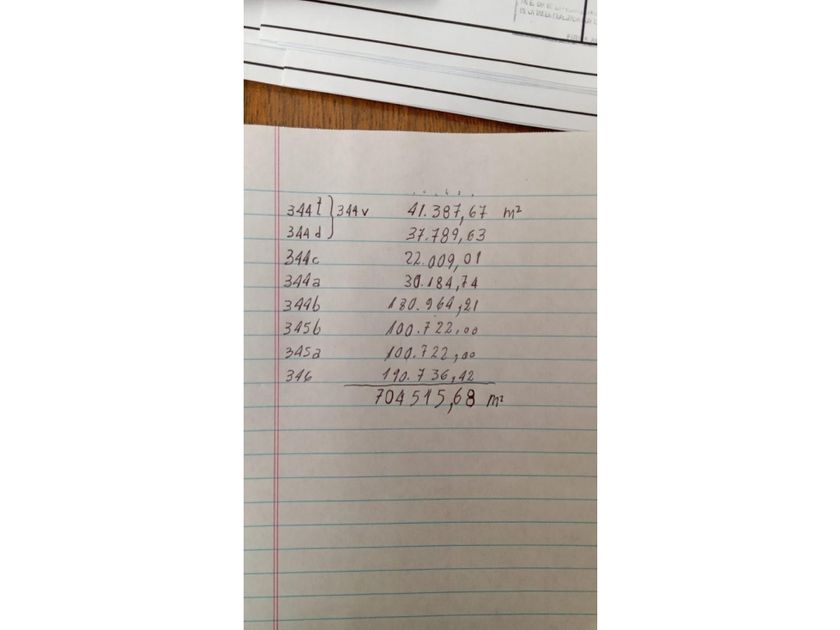 344t } 344v 41.387,67 m²
344d 37.789,63
344c 22.009,01
344a 30.184,74
344b 180.964,21
345b 100.722,00
345a 100.722,00
346 190.736,42
704515,68 m²